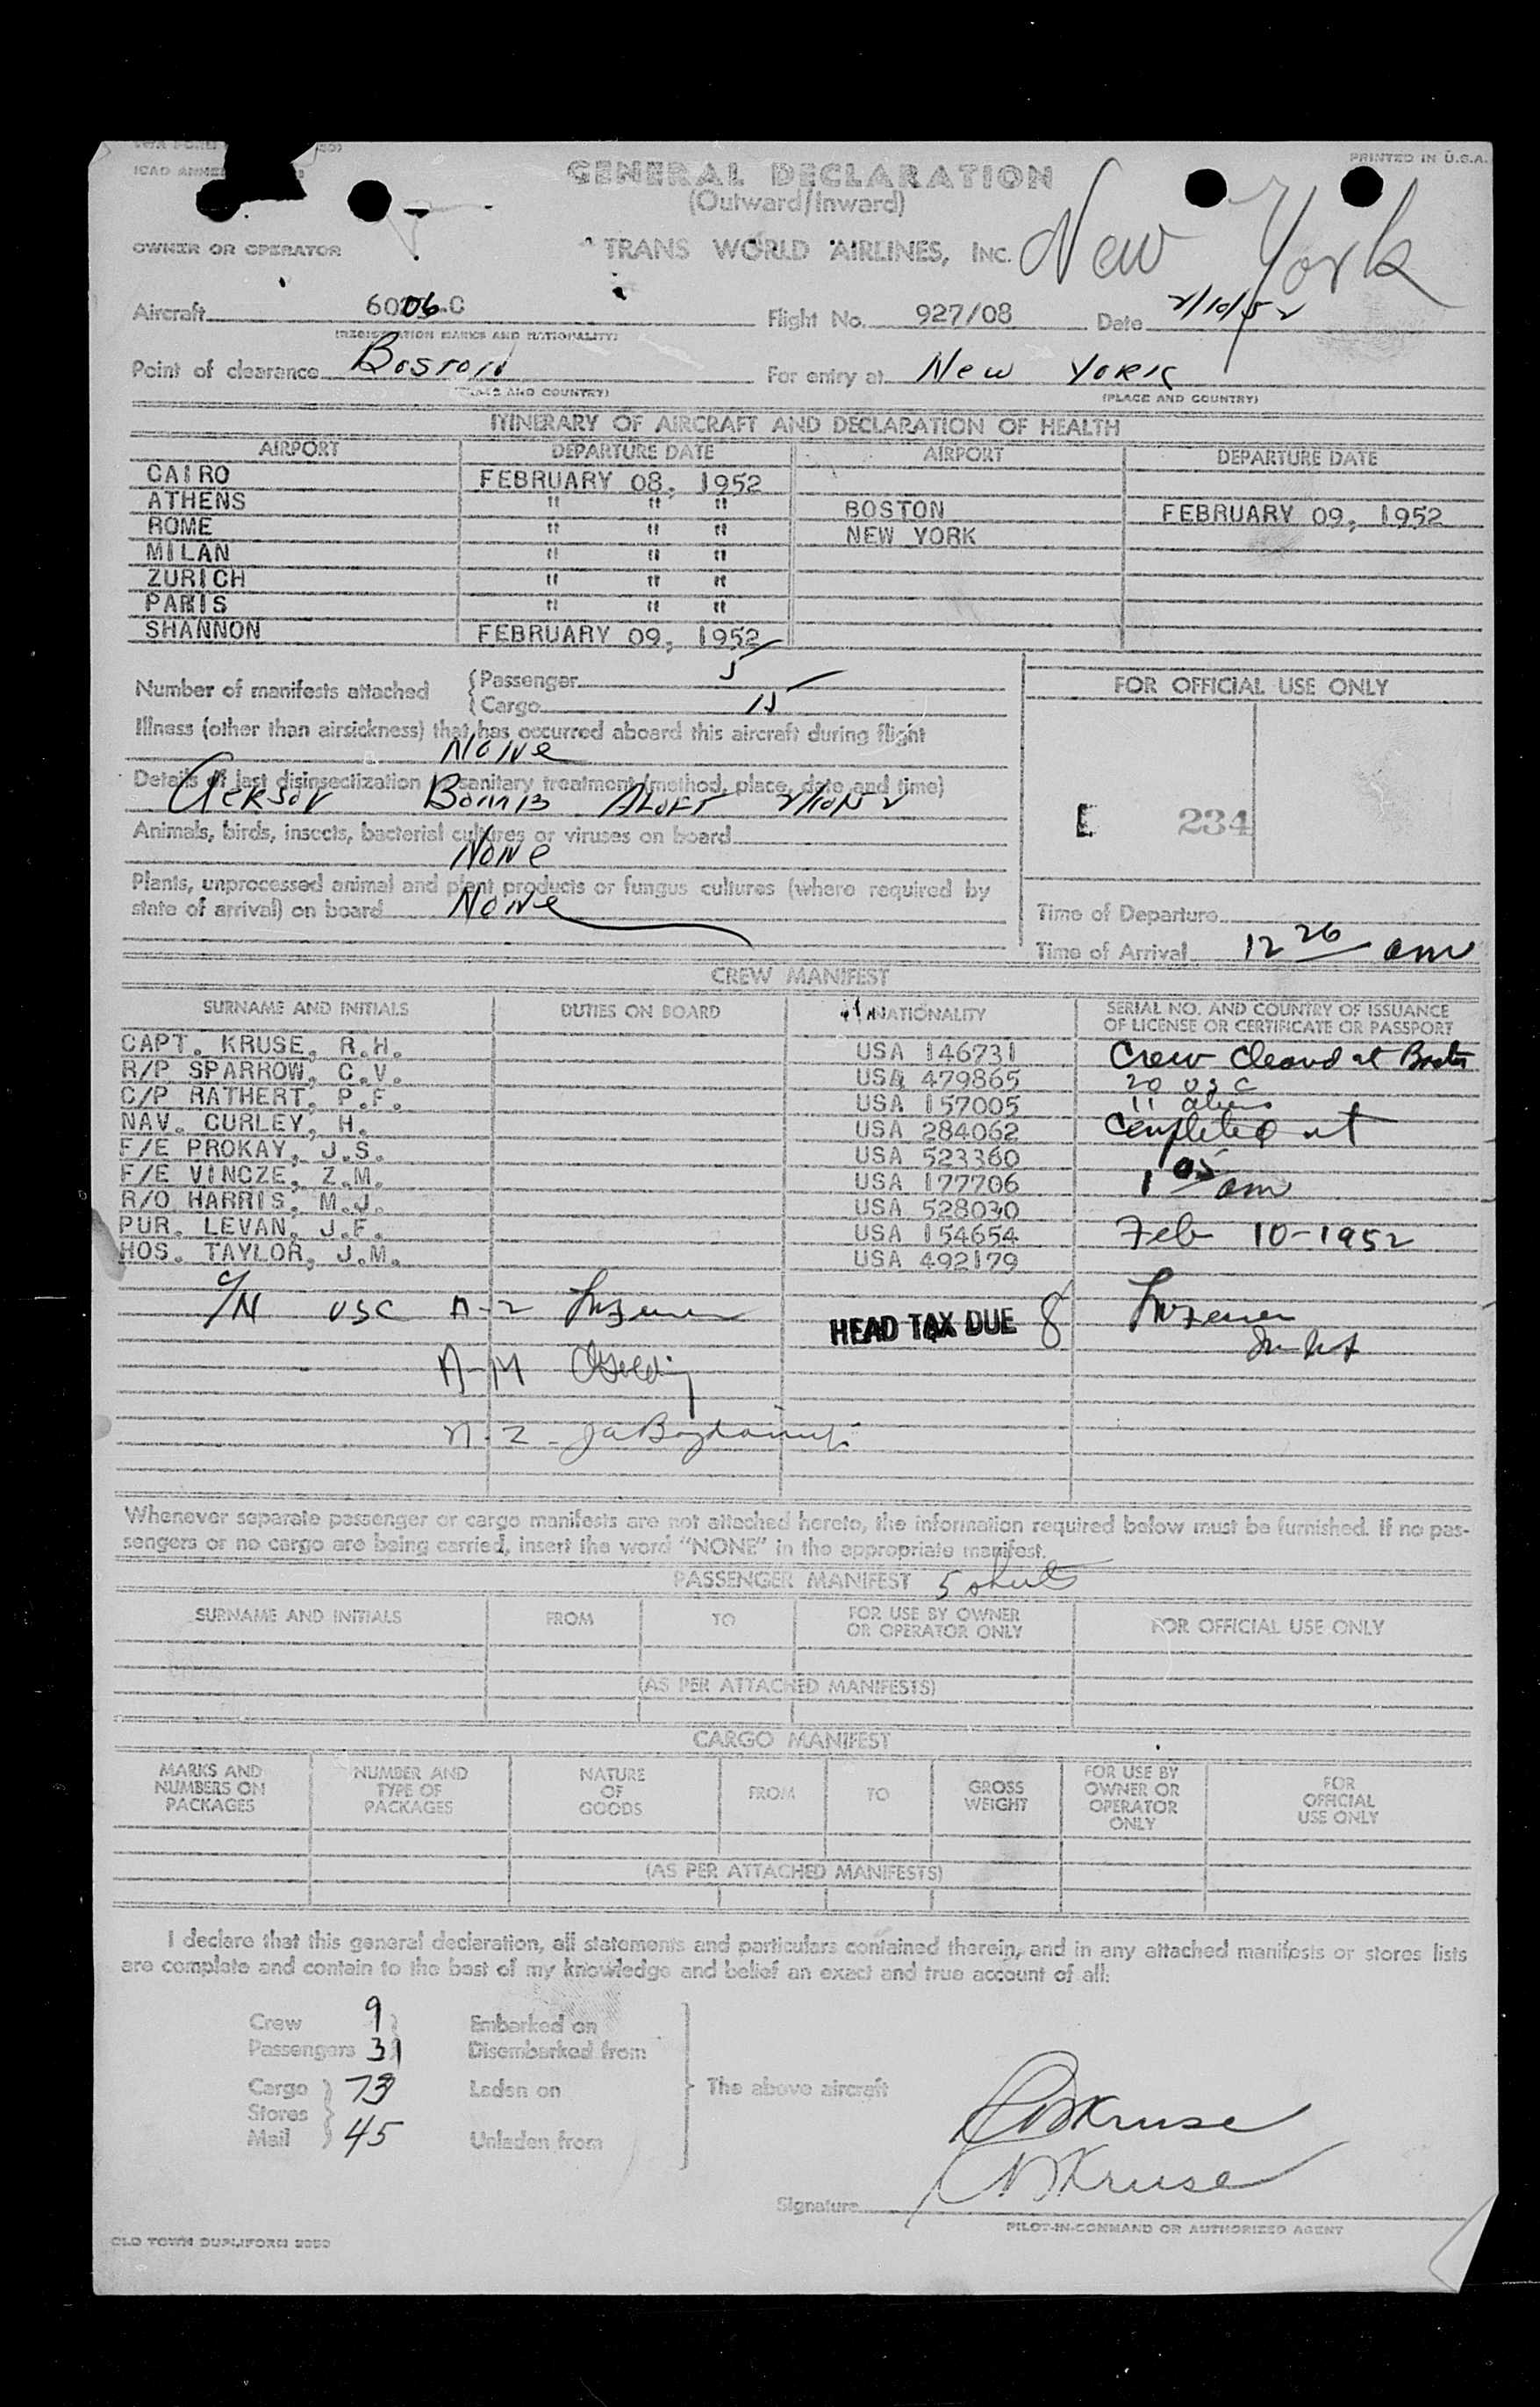 PRINTED IN U.S.A.
GENERAL DECLARATION
(Outward/Inward)
OWNER OR OPERATOR TRANS WORLD AIRLINES, INC. New York
Aircraft 6006-C Flight No. 927/08 Date 2/10/52
(REGISTRATION MARKS AND NATIONALITY)
Point of clearance Boston For entry at New York
(PLACE AND COUNTRY) (PLACE AND COUNTRY)
ITINERARY OF AIRCRAFT AND DECLARATION OF HEALTH
AIRPORT DEPARTURE DATE AIRPORT DEPARTURE DATE
CAIRO FEBRUARY 08, 1952
ATHENS " " " BOSTON FEBRUARY 09, 1952
ROME " " " NEW YORK
MILAN " " "
ZURICH " " "
PARIS " " "
SHANNON FEBRUARY 09, 1952
Number of manifests attached { Passenger 5
{ Cargo 15
FOR OFFICIAL USE ONLY
Illness (other than airsickness) that has occurred aboard this aircraft during flight
None
Details of last disinsectization or sanitary treatment (method, place, date and time)
Aerosol Bomb Aloft 2/10/52
E 234
Animals, birds, insects, bacterial cultures or viruses on board
None
Plants, unprocessed animal and plant products or fungus cultures (where required by
state of arrival) on board None
Time of Departure
Time of Arrival 12 26 am
CREW MANIFEST
SURNAME AND INITIALS DUTIES ON BOARD NATIONALITY SERIAL NO. AND COUNTRY OF ISSUANCE
OF LICENSE OR CERTIFICATE OR PASSPORT
CAPT. KRUSE, R.H. USA 146731 Crew Cleared at Boston
R/P SPARROW, C.V. USA 479865 20 USC
C/P RATHERT, P.F. USA 157005 11 aliens
NAV. CURLEY, H. USA 284062 Completed at
F/E PROKAY, J.S. USA 523360
F/E VINCZE, Z.M. USA 177706 1 05 am
R/O HARRIS, M.J. USA 528030
PUR. LEVAN, J.F. USA 154654 Feb 10-1952
HOS. TAYLOR, J.M. USA 492179
C/N USC A-2
HEAD TAX DUE 8
A-M
N-2
Whenever separate passenger or cargo manifests are not attached hereto, the information required below must be furnished. If no pas-
sengers or no cargo are being carried, insert the word "NONE" in the appropriate manifest.
PASSENGER MANIFEST 5 sheets
SURNAME AND INITIALS FROM TO FOR USE BY OWNER OR OPERATOR ONLY FOR OFFICIAL USE ONLY
(AS PER ATTACHED MANIFESTS)
CARGO MANIFEST
MARKS AND NUMBERS ON PACKAGES NUMBER AND TYPE OF PACKAGES NATURE OF GOODS FROM TO GROSS WEIGHT FOR USE BY OWNER OR OPERATOR ONLY FOR OFFICIAL USE ONLY
(AS PER ATTACHED MANIFESTS)
I declare that this general declaration, all statements and particulars contained therein, and in any attached manifests or stores lists
are complete and contain to the best of my knowledge and belief an exact and true account of all:
Crew 9 Embarked on
Passengers 31 Disembarked from
Cargo 73 Laden on The above aircraft
Stores
Mail 45 Unladen from
RHKruse
RHKruse
Signature
PILOT-IN-COMMAND OR AUTHORIZED AGENT
OLD TOWN DUPLIFORM